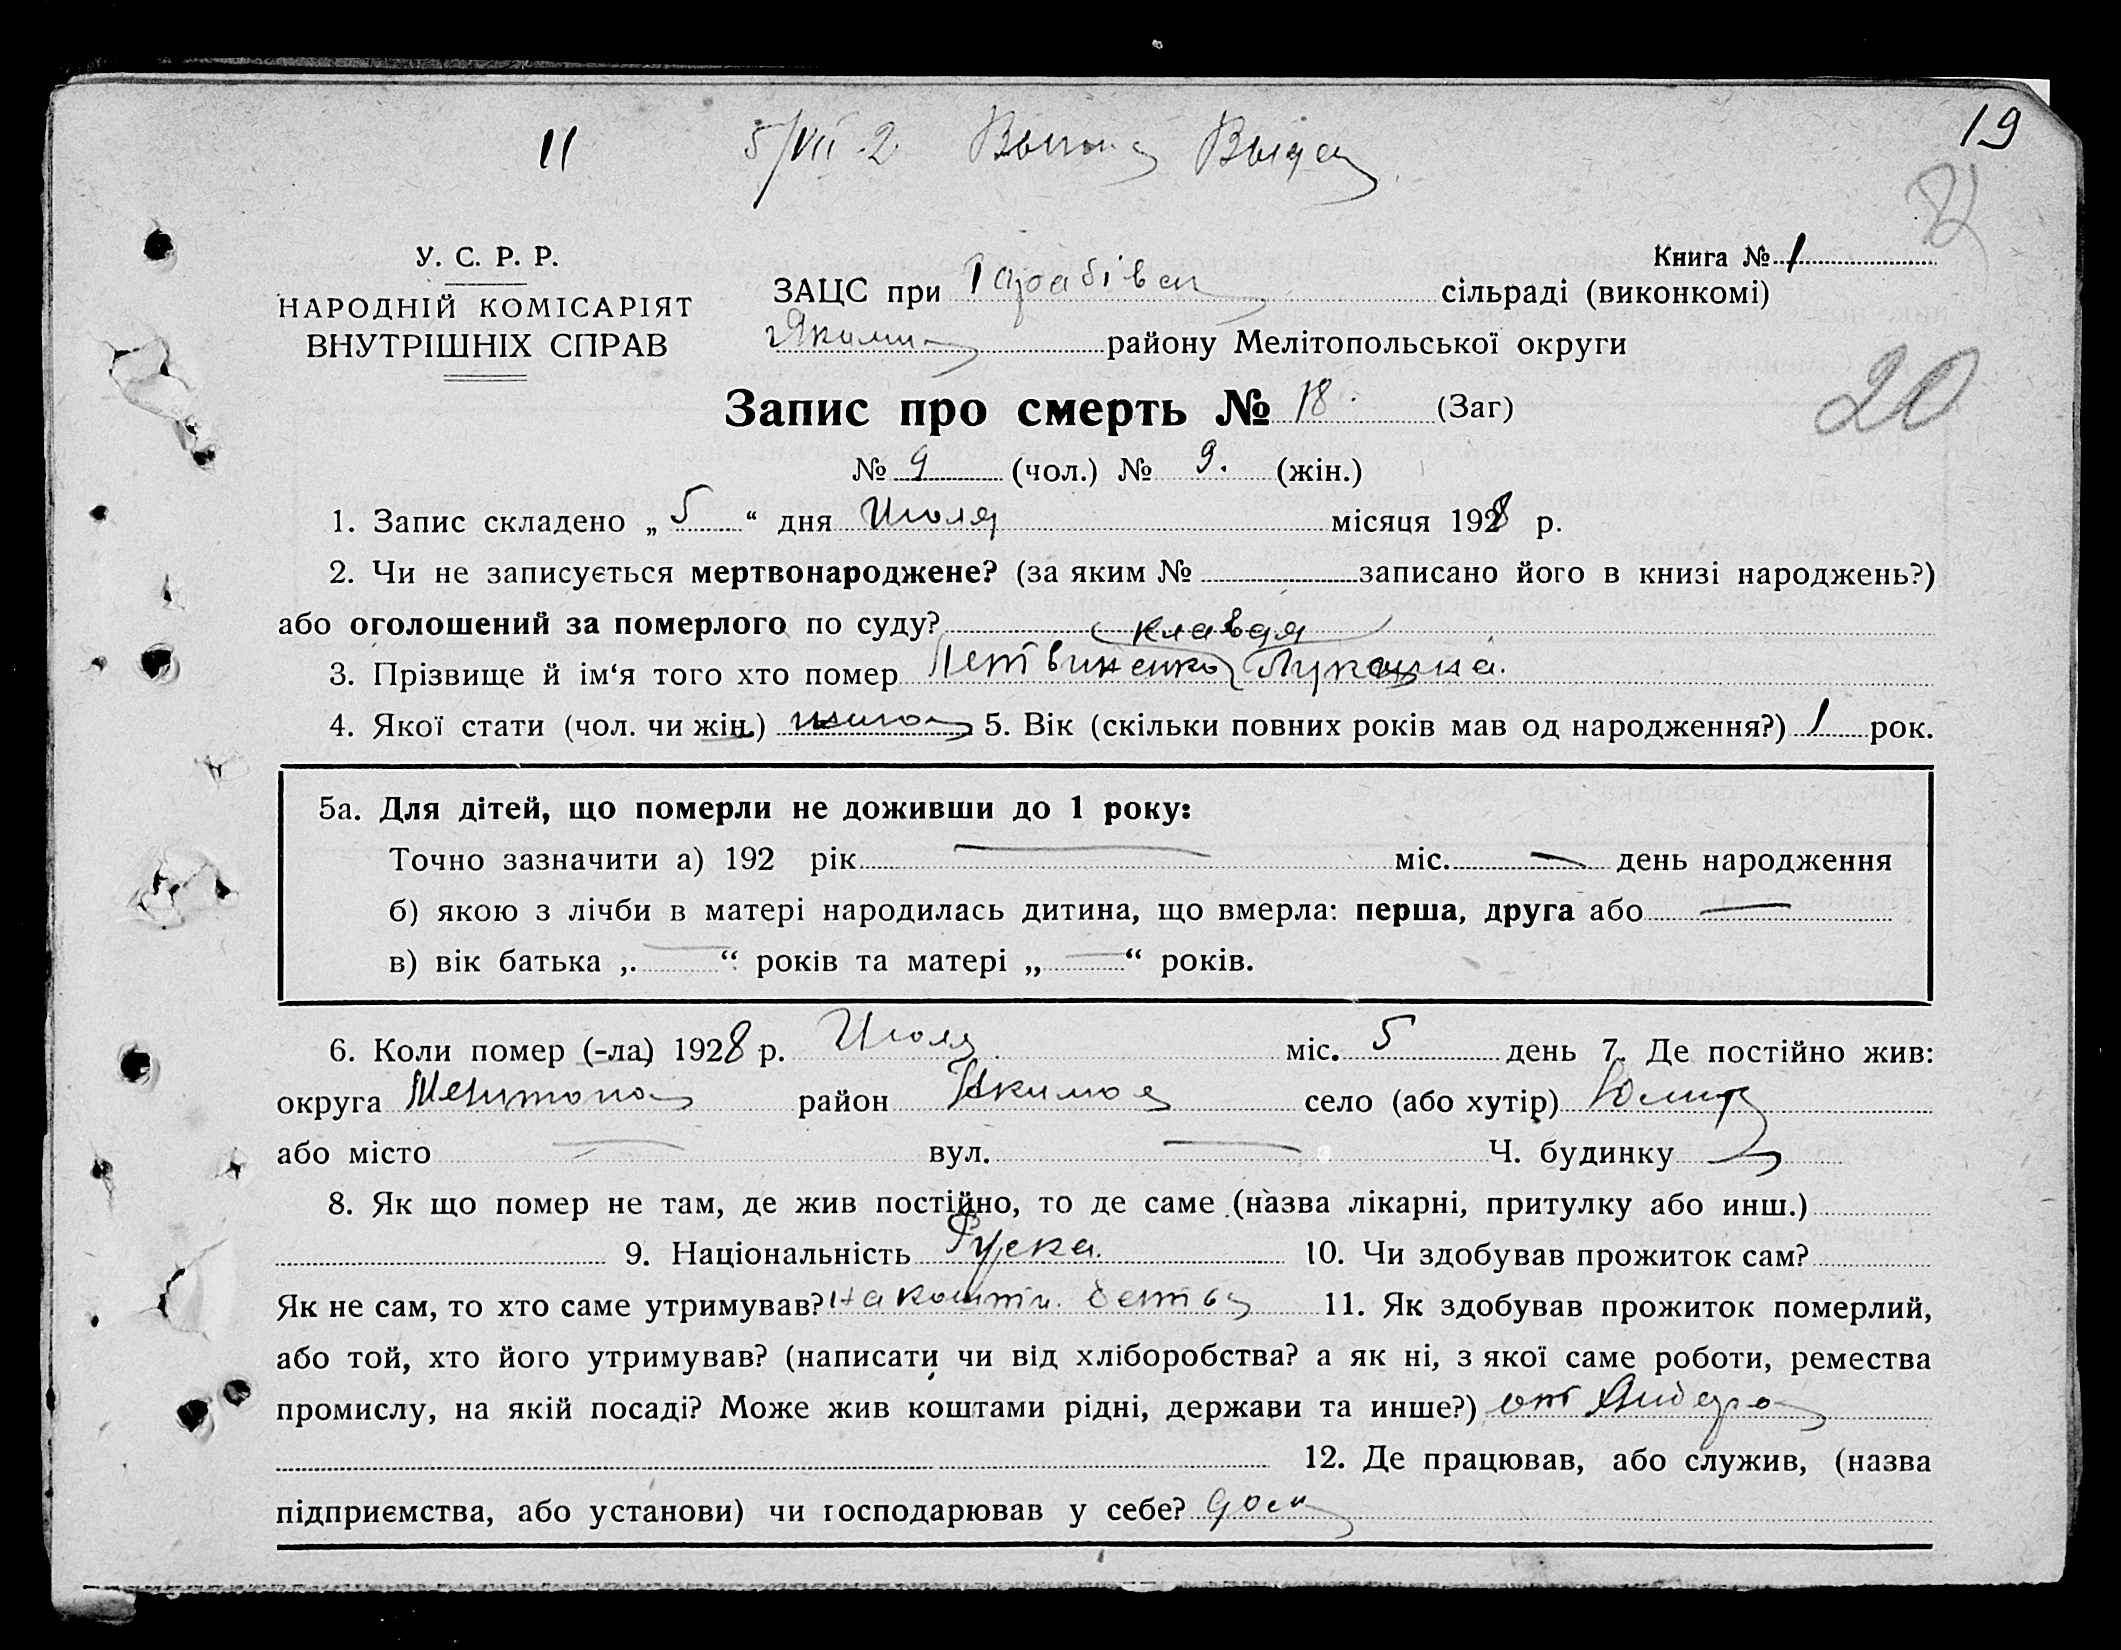 11 5/VII-2 19
У. С. Р. Р.
Книга № 1
НАРОДНІЙ КОМІСАРІЯТ
ВНУТРІШНІХ СПРАВ
ЗАЦС при сільраді (виконкомі)
району Мелітопольської округи
20
Запис про смерть № 18. (Заг)
№ 9 (чол.) № 9. (жін.)
1. Запис складено „ 5 “ дня Июля місяця 1928 р.
2. Чи не записується мертвонароджене? (за яким № записано його в книзі народжень?)
або оголошений за померлого по суду?
Клавдя
3. Прізвище й ім‘я того хто помер Летвиненко
4. Якої стати (чол. чи жін.) 5. Вік (скільки повних років мав од народження?) 1 рок.
5а. Для дітей, що померли не доживши до 1 року:
Точно зазначити а) 192 рік — міс. — день народження
б) якою з лічби в матері народилась дитина, що вмерла: перша, друга або —
в) вік батька „ — “ років та матері „ — “ років.
6. Коли помер (-ла) 1928 р. Июля міс. 5 день 7. Де постійно жив:
округа Мелитопо район село (або хутір)
або місто — вул. — Ч. будинку —
8. Як що помер не там, де жив постійно, то де саме (назва лікарні, притулку або инш.)
9. Національність Руска. 10. Чи здобував прожиток сам?
Як не сам, то хто саме утримував? на кошти 11. Як здобував прожиток померлий,
або той, хто його утримував? (написати чи від хліборобства? а як ні, з якої саме роботи, ремества
промислу, на якій посаді? Може жив коштами рідні, держави та инше?) от
12. Де працював, або служив, (назва
підприємства, або установи) чи господарював у себе?